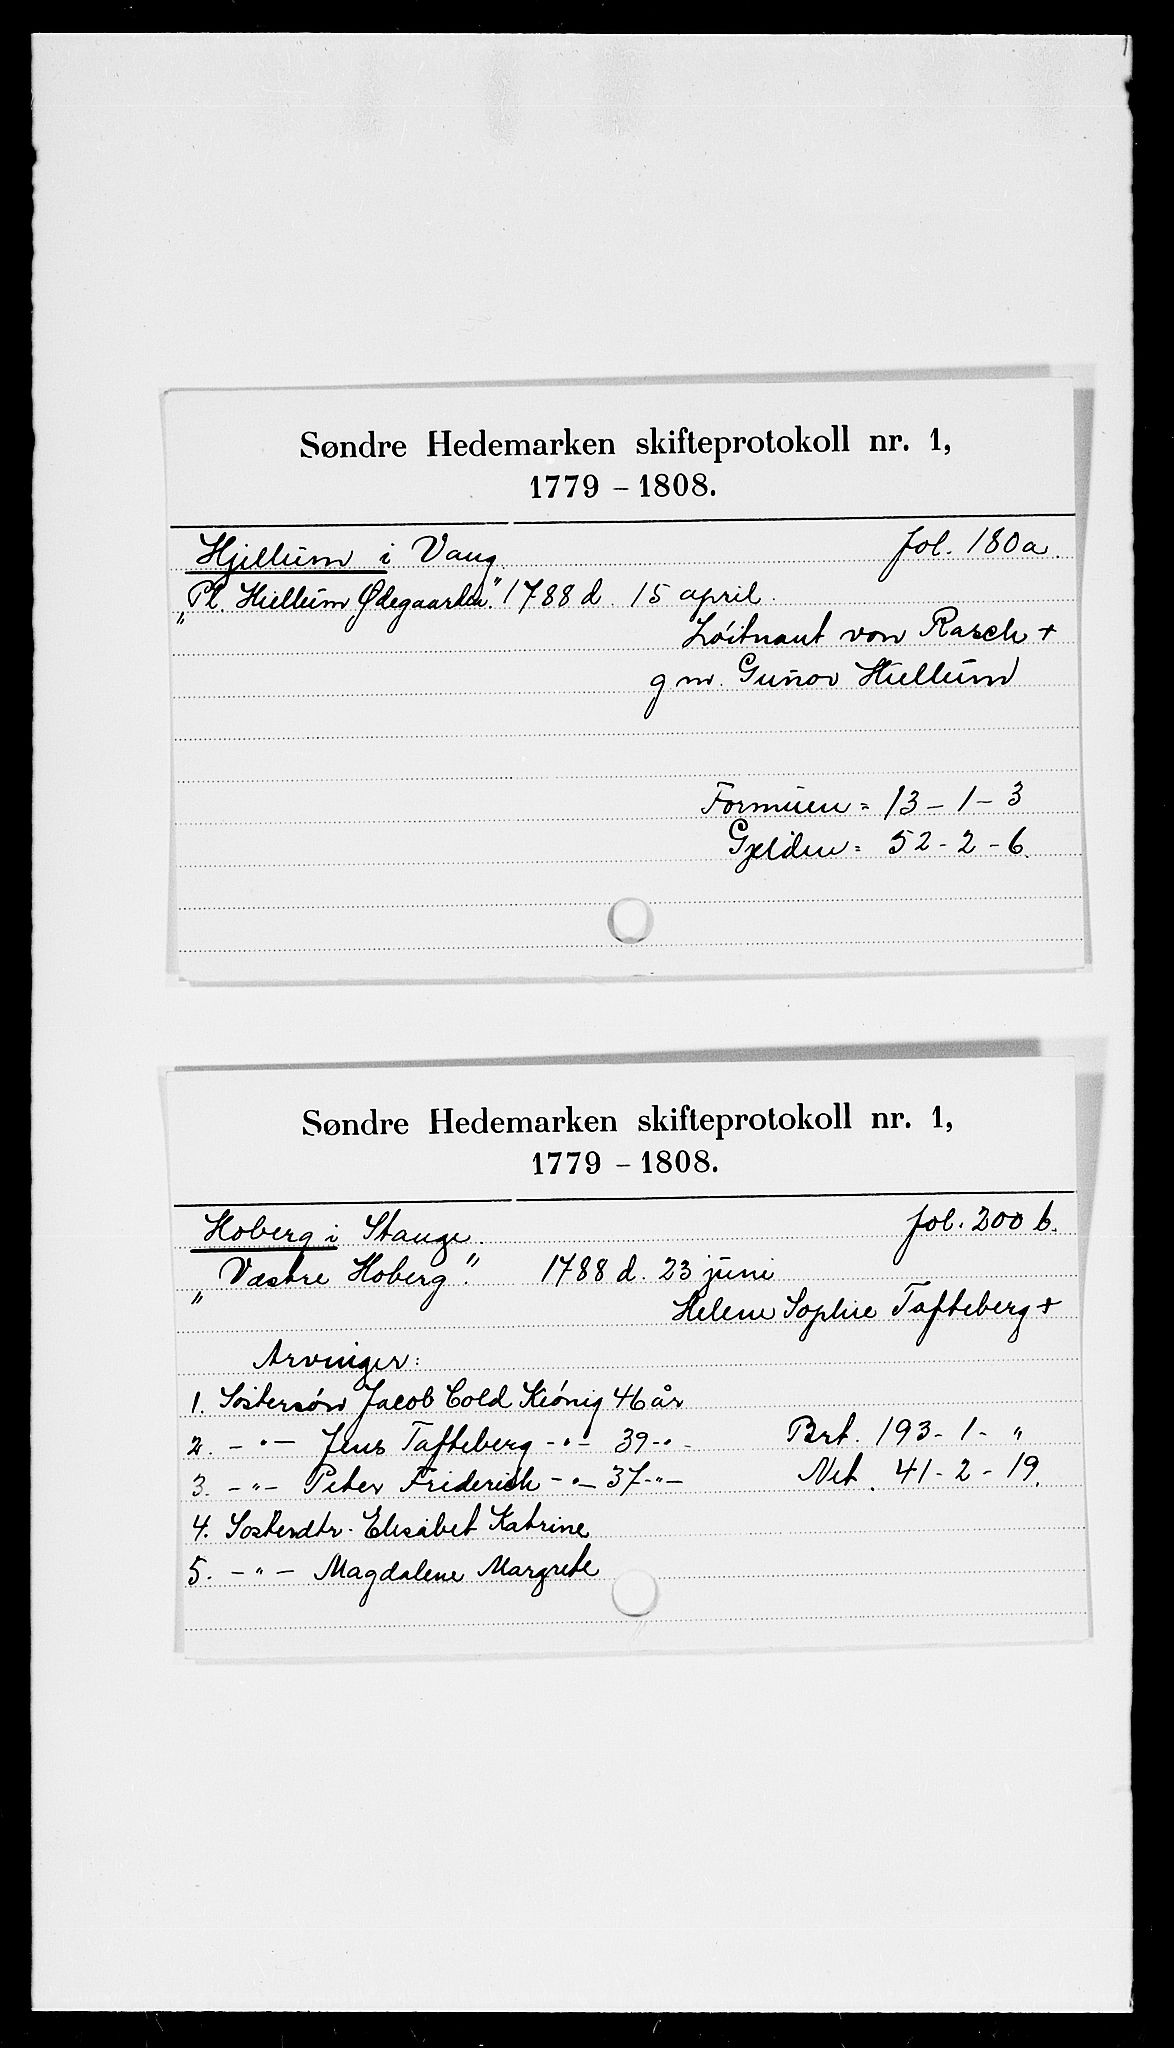 Søndre Hedemarken skifteprotokoll nr. 1,
1779 – 1808.
Hjellum i Vang. fol. 180 a.
"Pl. Hiellum Ødegaarden". 1788 d. 15 april.
Löitnant von Rasch +
g m. Gunor Hiellum
Formuen = 13 - 1 - 3
Gjelden = 52 - 2 - 6.
Søndre Hedemarken skifteprotokoll nr. 1,
1779 – 1808.
Hoberg i Stange. fol. 200 b.
"Vestre Hoberg". 1788 d. 23 juni
Helene Sophie Tafteberg +
Arvinger:
1. Söstersön Jacob Cold Kiönig 46 år
2. - " - Jens Tafteberg - " - 39 - " - Brt. 193 - 1 - "
3. - " - Peter Friderich - " - 37 - " - Net. 41 - 2 - 19.
4. Sösterdtr. Elisabet Katrine
5. - " - Magdalene Margrete